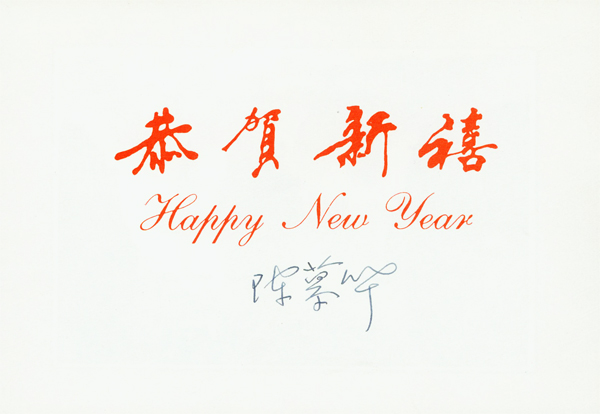 恭贺新禧
Happy New Year
陈慕华